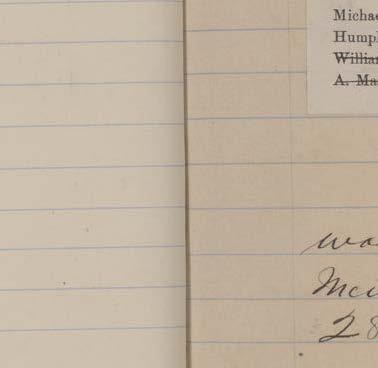 Michae
Humph
Willian
A. Ma
wa
Mci
28